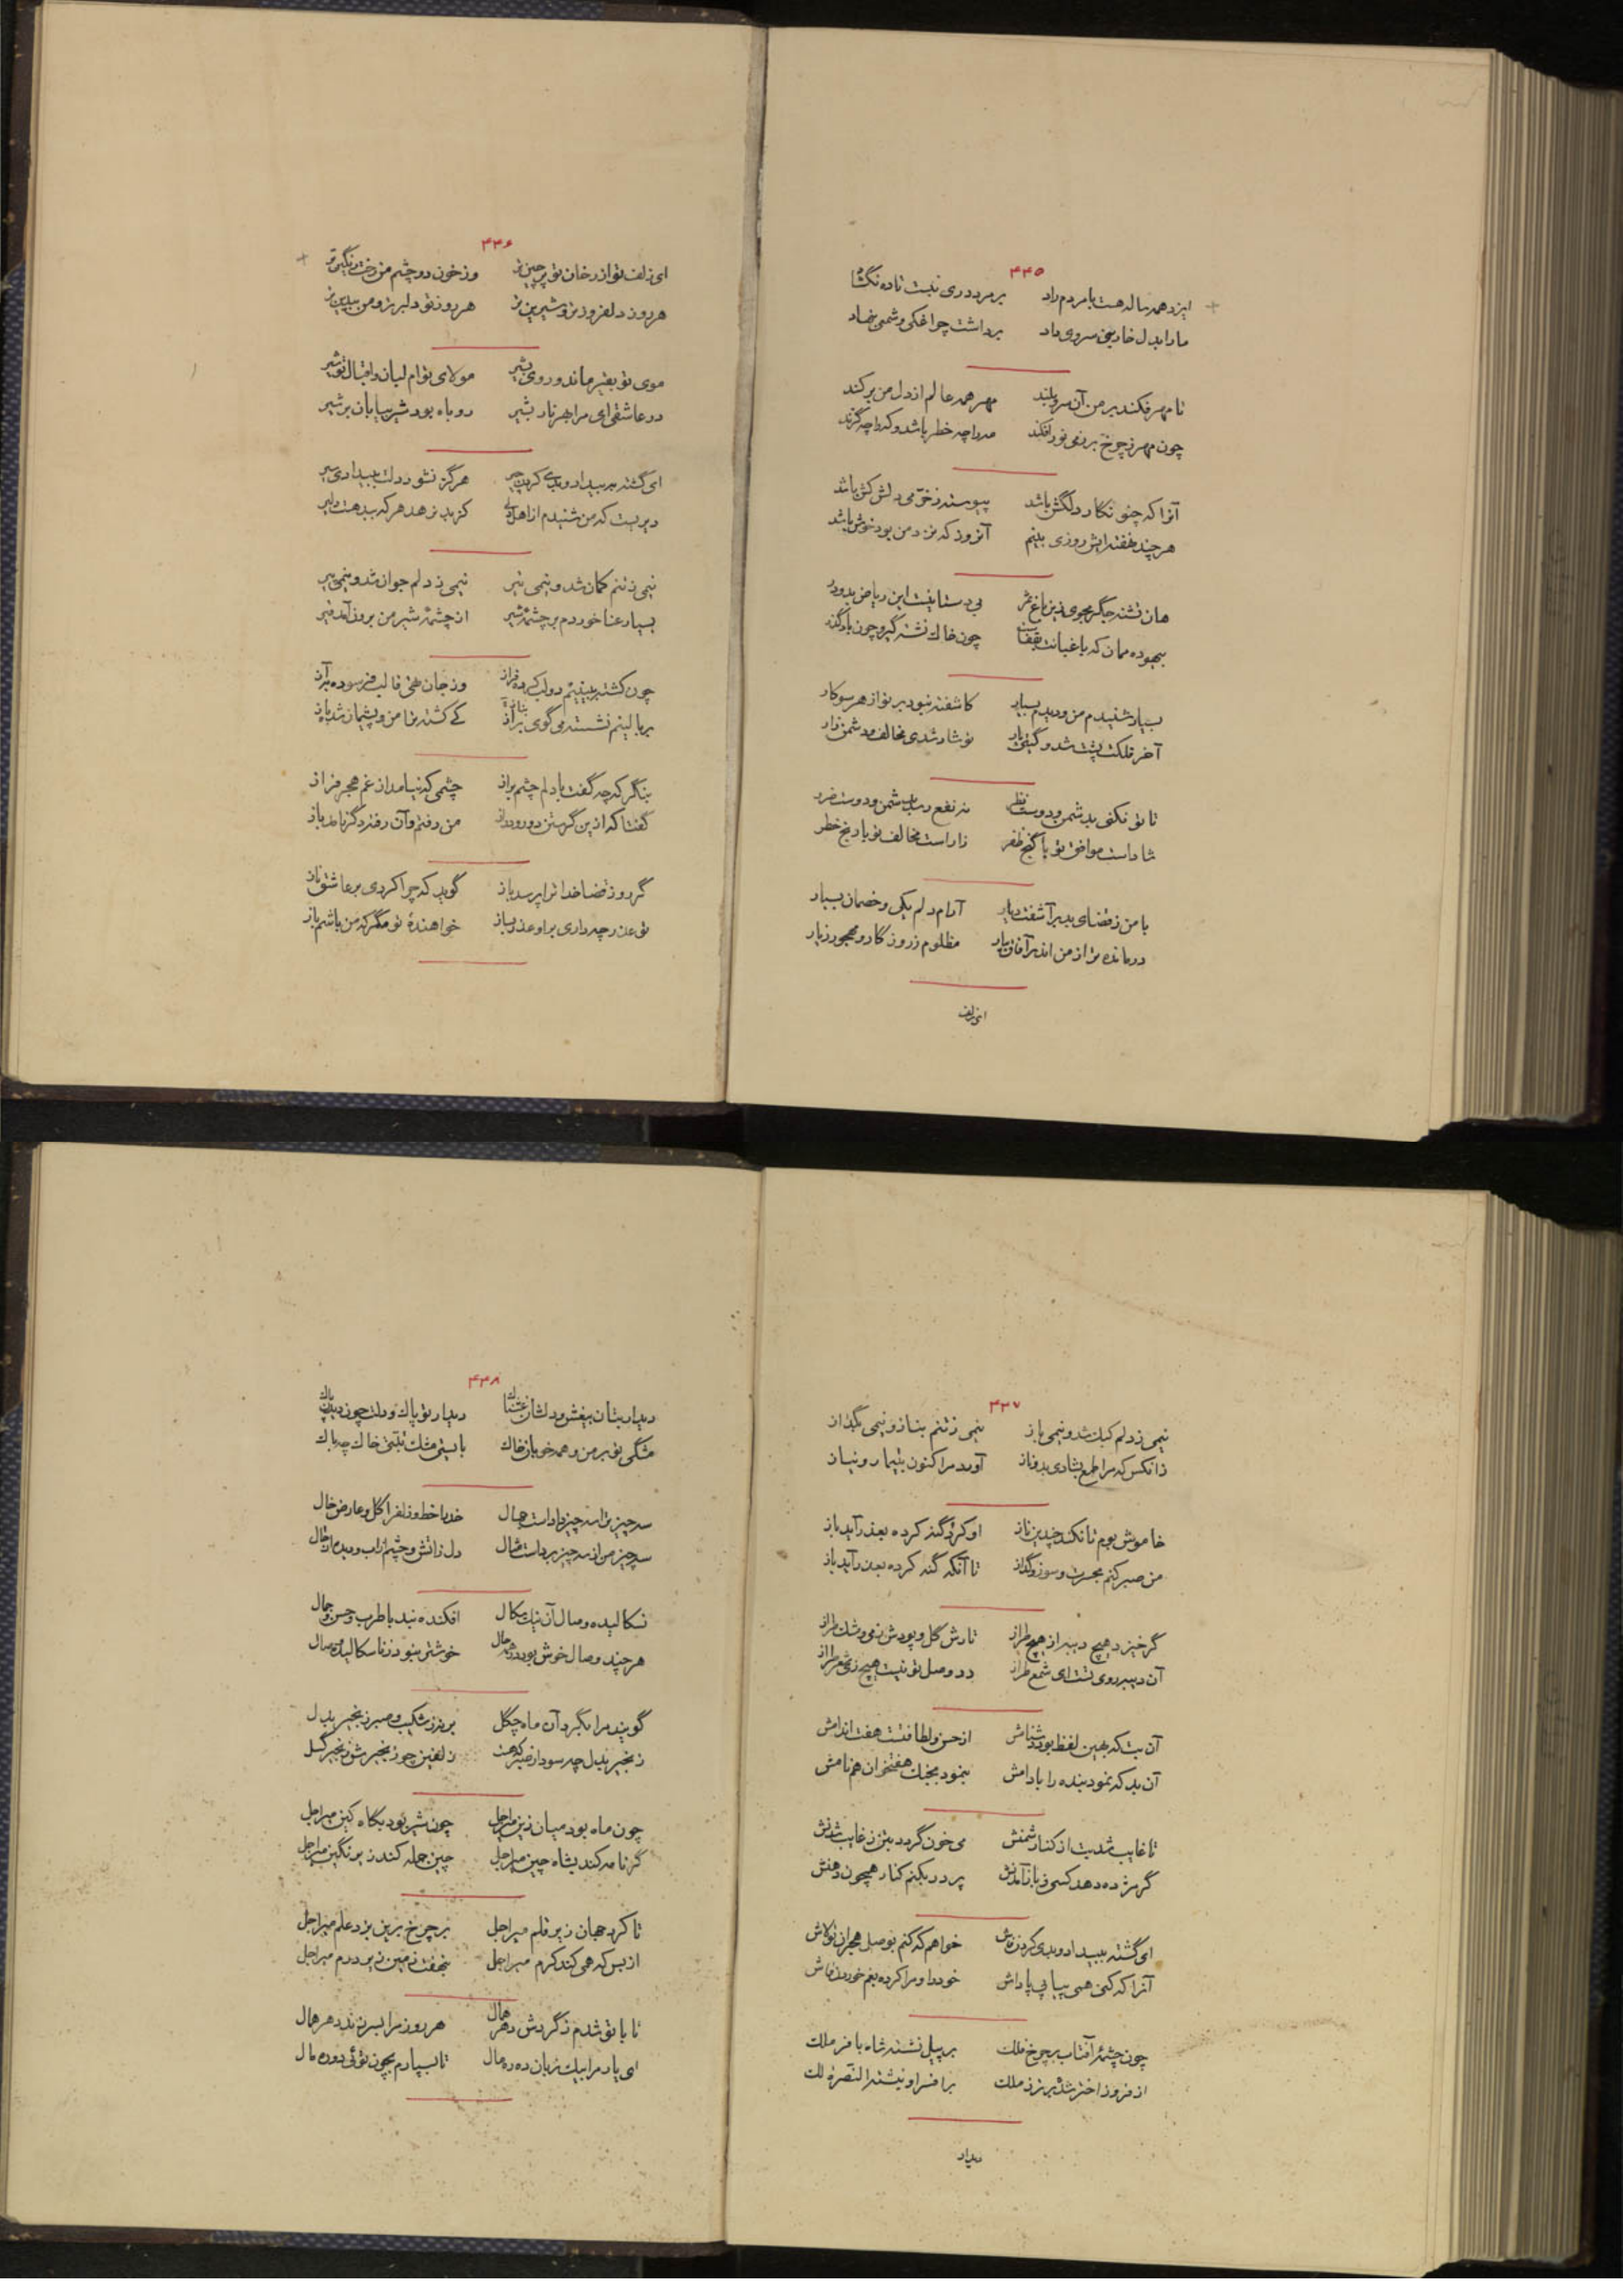 ۴۴۵
ایزد همه ساله هست با مردم راد بر مرد دری نبست تا ده نگشاد
ما را بدل خار بنی سروی داد برداشت چراغکی و شمعی بنهاد
تا مهر فکند بر من آن سرو بلند مهر همه عالم از دل من برکند
چون مهر ز چرخ بر زمی نور افکند مه را چه خطر باشد و که را چه گزند
آنرا که چنو نگار دلکش باشد پیوسته ز خرمی دلش کش باشد
هر چند بهفته ایش روزی بینم آنروز که نزد من بود خوش باشد
هان تشنه جگر مجوی زین باغ ثمر بی دستانیست این ریاض بدودر
بیهوده ممان که باغبانت بقفاست چون خاک نشسته گیر و چون باد گذر
بسیار شنیدم من و دیدم بسیار کاشفته نبود بر تو از هر سو کار
آخر فلکت پشت شد و گیتی یار تو شاد شدی مخالف و دشمن زار
تا تو نکنی بدشمن و دوست نظر نه نفع رسد بدشمن و دوست نه ضر
شاد است موافق تو با گنج ظفر زار است مخالف تو با رنج خطر
با من ز قضای بد برآشفت دیار آرام دلم یکی و خصمان بسیار
درمانده تر از من اندر آفاق بیار مظلوم ز روزگار و مهجور ز یار
ای زلف
۴۴۶
ای زلف تو از رخان تو پر چین تر وز خون دو چشم من رخت رنگین تر
هر روز دلفروزتر و شیرین تر هر روز تو دلبرتر و من بیدین تر
موی تو بقیر ماند و روی بشیر مولای توام لبان و اقبال تو شیر
در عاشقی ای مرا بهر نار بشیر روباه بود شیر بیابان بر شیر
ای گشته به بیداد و بدی کردن چیر هرگز نشود دلت ز بیدادی سیر
دیر است که من شنیدم از اهل دلی کز بد نزهد هر که ببد هست دلیر
نیمی ز تنم کمان شد و نیمی تیر نیمی ز دلم جوان شد و نیمی پیر
بسیار عنا خوردم بر چشمه شیر از چشمه شیر من برون آمد قیر
چون کشته ببینیم دو لب کرده فراز وز جان تهی قالب فرسوده بآز
بر بالینم نشسته می گوی بناز کی کشته ترا من و پشیمان شده باز
بنگر که چه گفت با دلم چشم براز چشمی که نیامد از غم هجر فراز
گفتا که ازین گریستن دور و دراز من رفتم و آن رفته دگر نامد باز
گر روز قضا خدا ترا پرسد باز گوید که چرا کردی بر عاشق ناز
تو عذر چه داری بر او عذر بساز خواهنده تو مگر که من باشم باز
۴۴۷
نیمی ز دلم کبک شد و نیمی باز نیمی ز تنم بناز و نیمی بگداز
زانکس که مرا طمع بشادی بد و ناز آورد مرا کنون بتیمار و نیاز
خاموش بوم تا نکند چندین ناز او کرد گنه کرده بعذر آید باز
من صبر کنم بحسرت و سوز و گداز تا آنگه گنه کرده بعذر آید باز
گر خیزد هیچ دیبه از هیچ طراز تارش گل و پودش ز می و مشک طراز
آن دیبه روی تست ای شمع طراز در وصل تو نیست هیچ زی شمع طراز
آن بت که بهین لفظ بود دشنامش از حسن و لطافتست هفت اندامش
آن بد که نمود بنده را بادامش ننمود بجنگ هفتخوان همنامش
تا غایب شد بت از کنار شمنش می خون گردد بتن ز غایب شدنش
گر مژده دهد کسی ز باز آمدنش پر در بکنم کنار همچون دهنش
ای گشته به بیداد و بدی کردن فاش خواهم که کنم بوصل هجران تو لاش
آنرا که کنی همی بیابی پاداش خود را و مرا کرده بغم خوردن فاش
چون چشمه آفتاب بر چرخ فلک بر پیل نشسته شاه با فر ملک
از فر وز اختر شده برتر ز ملک بر افسر او نبشته النصرة لک
دیدار
۴۴۸
دیدار بتان بیغش و دلشان غشناک دیدار تو پاک و دلت چون دیدن پاک
مشکی تو بر من و همه خوبان خاک با بستی مشک نبستی خاک چه باک
سه چیز ترا سه چیز داد است جمال خد با خط و زلف را گل و عارض خال
سه چیز من از سه چیز برد است مثال دل ز آتش و چشم از آب و دیده ز خال
نسگالیده وصال آن نیک سگال افکنده نبید با طرب و حسن و جمال
هر چند وصال خوش بود در همه حال خوشتر نبود ز ناسگالیده وصال
گویند مرا نگیرد آن ماه چگل بر تو ز شکیب و صبر زنجیر بدل
زنجیر بدل چه سود از صبر که هست زلفین چو زنجیرش زنجیر گسل
چون ماه بود میان زین میر اجل چون شیر بود بگاه کین میر اجل
گر نامه کند بشاه چین میر اجل چین جمله کند زیر نگین میر اجل
تا کرد جهان زیر قلم میر اجل بر چرخ برین بزد علم میر اجل
از بس که همی کند کرم میر اجل بنهفت زمین زیر درم میر اجل
تا با تو شدم ز گردش دهر همال هر روز مرا بسر زند دهر همال
ای یار مرا بیک زبان ده ره مال تا بسپارم بچون توئی دوره مال